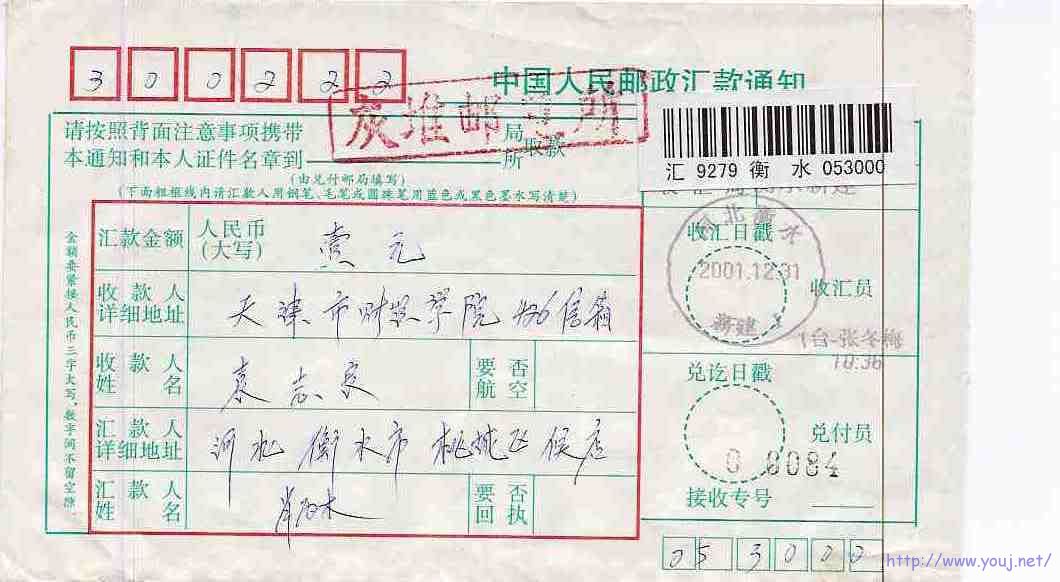 300222
中国人民邮政汇款通知
灰堆邮
请按照背面注意事项携带
本通知和本人证件名章到 局 所 取款
(由兑付邮局填写)
(下面粗框线内请汇款人用钢笔、毛笔或圆珠笔用蓝色或黑色墨水写清楚)
汇 9279 衡 水 053000
金额要紧接人民币三字大写,数字间不留空隙。
汇款金额 人民币(大写) 壹元
收款人详细地址 天津市财经学院 信箱
收款人姓名 袁志 要否航空
汇款人详细地址 河北衡水市
汇款人姓名 要否回执
收汇日戳
河北衡水
2001.12.31
新建
收汇员
1台-张冬梅
10:36
兑讫日戳
兑付员
0 0084
接收专号
053000
http://www.youj.net/